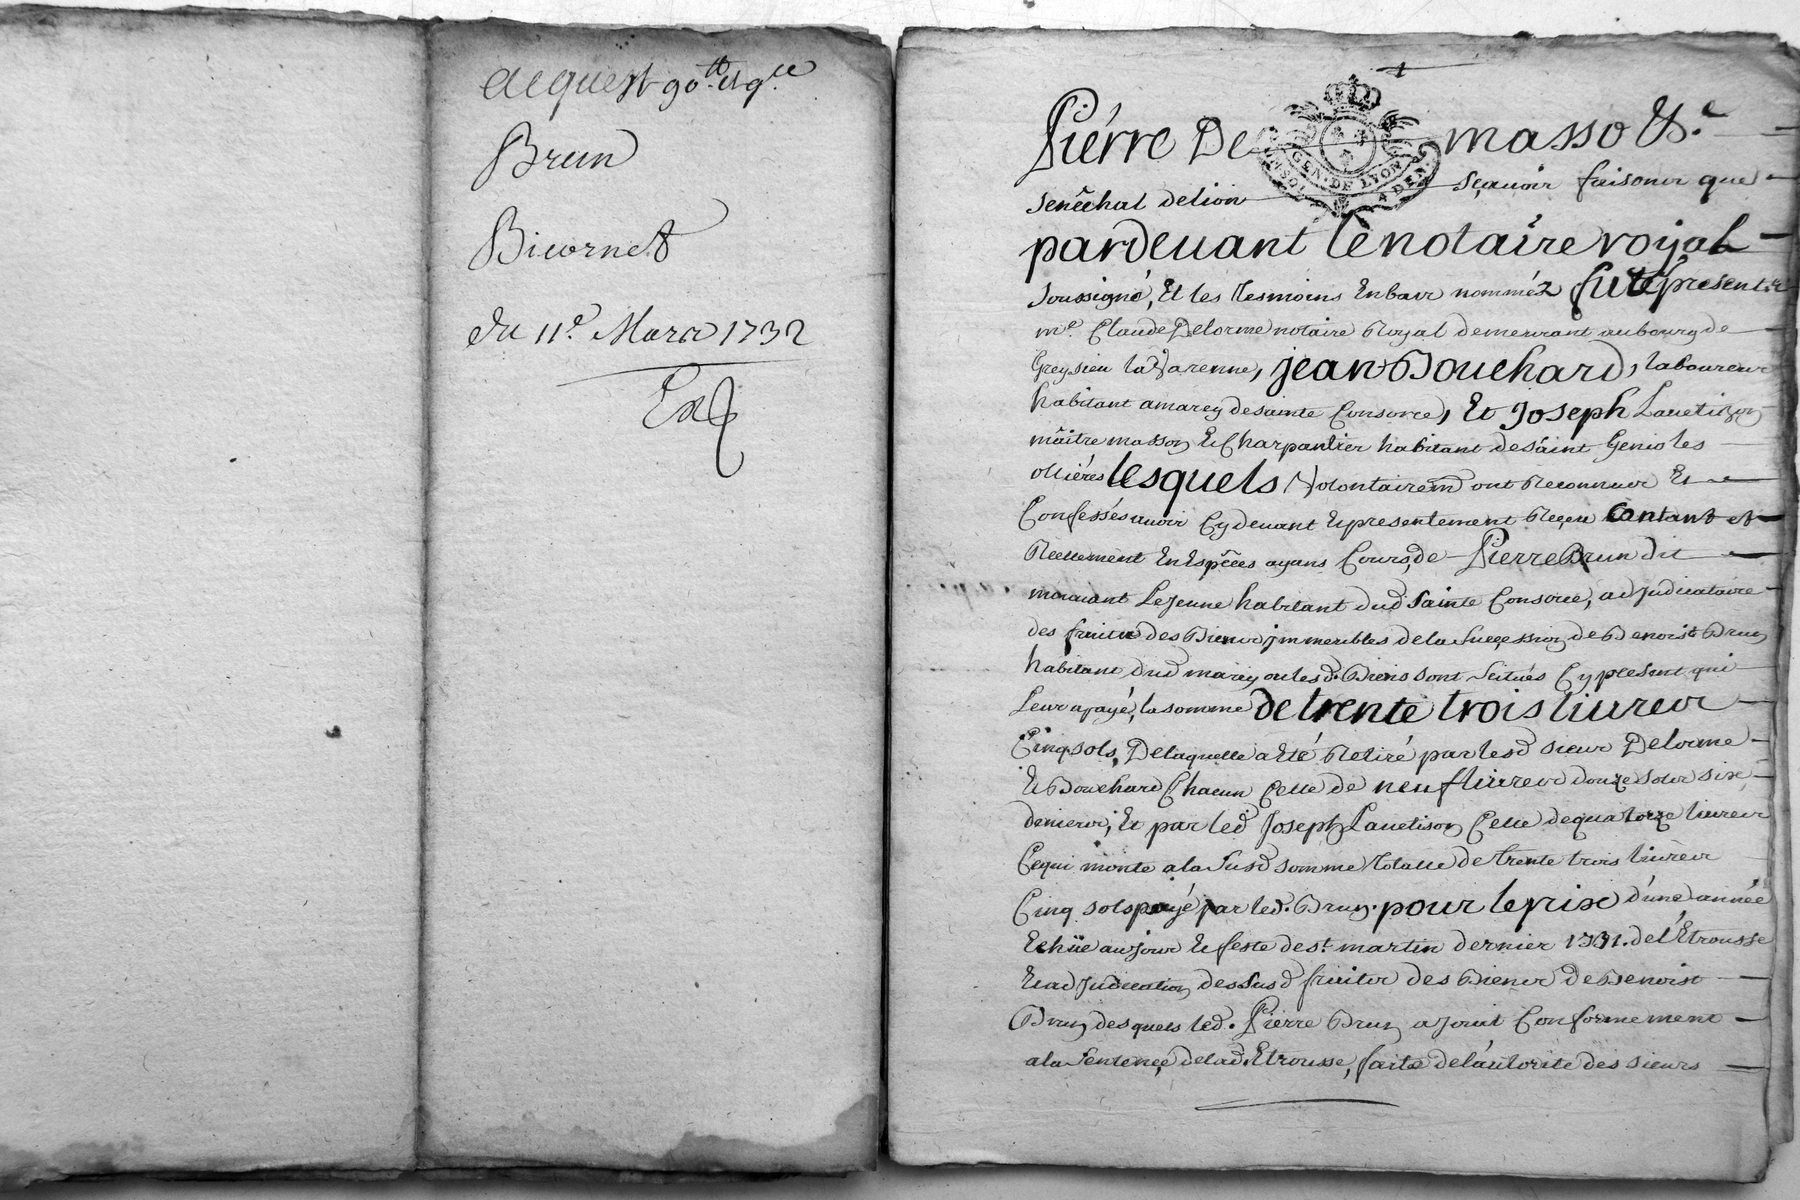 acquest 90.tt et q.ce
Brun
Bicornet
du 11.e Mars 1732
Exp
Pierre De masso &.c
GEN · DE LYON
senêchal de lion sçavoir faisons que
pardevant le notaire royal
soussigné, Et les tesmoins Enbas nommés fut présent
m.e Claude Delorme notaire Royal demeurant au bourg de
Greysieu la Varenne, jean Bouchard, laboureur
habitant a marcy de sainte Consorce, Et Joseph Lavetizon
maître masson Et Charpantier habitant de saint Genis les
ollières lesquels Volontairem.t ont Reconnus Et
Confessés avoir Cydevant Et presentement Reçeu Contant et
Reellement En Espêces ayans Cours, de Pierre Brun dit
morant Le Jeune habitant dud Sainte Consorce, adjudicataire
des fruits des Biens jmmeubles de la Suççession de Benoist Brun
habitant dud marcy ou lesd. Biens sont Scitués Cy present qui
Leur a payé, la somme de trente trois livres
Cinq sols, De laquelle a Eté Retiré par lesd sieur Delorme
Et Bouchard Chacun Celle de neuf livres douze sols six
deniers; Et par led Joseph Lavetison Celle de quatorze livres
Ce qui monte a la Susd somme totalle de trente trois livres
Cinq sols payé par led. Brun. pour le prix d'une année
Echüe au jour Et feste de s.t martin dernier 1731. de l'Étrousse
Et adjudication des Susd fruits des Biens de Benoist
Brun desquels led. Pierre Brun a jouit Conformement
a la Sentençe de lad. Etrousse, faite de l'autorité des sieurs